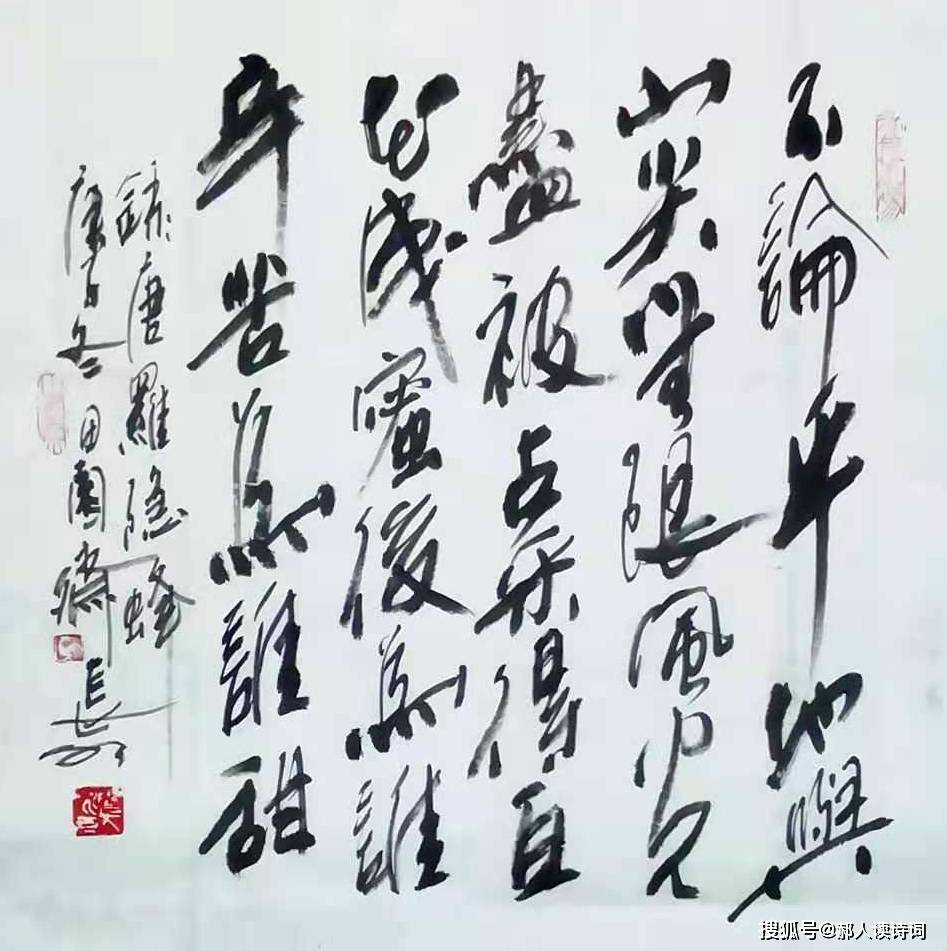 不論平地與
山尖無限風光
盡被占采得百
花成蜜後為誰
辛苦為誰甜
錄唐羅隱蜂
庚子冬田園
搜狐号@郝人读诗词